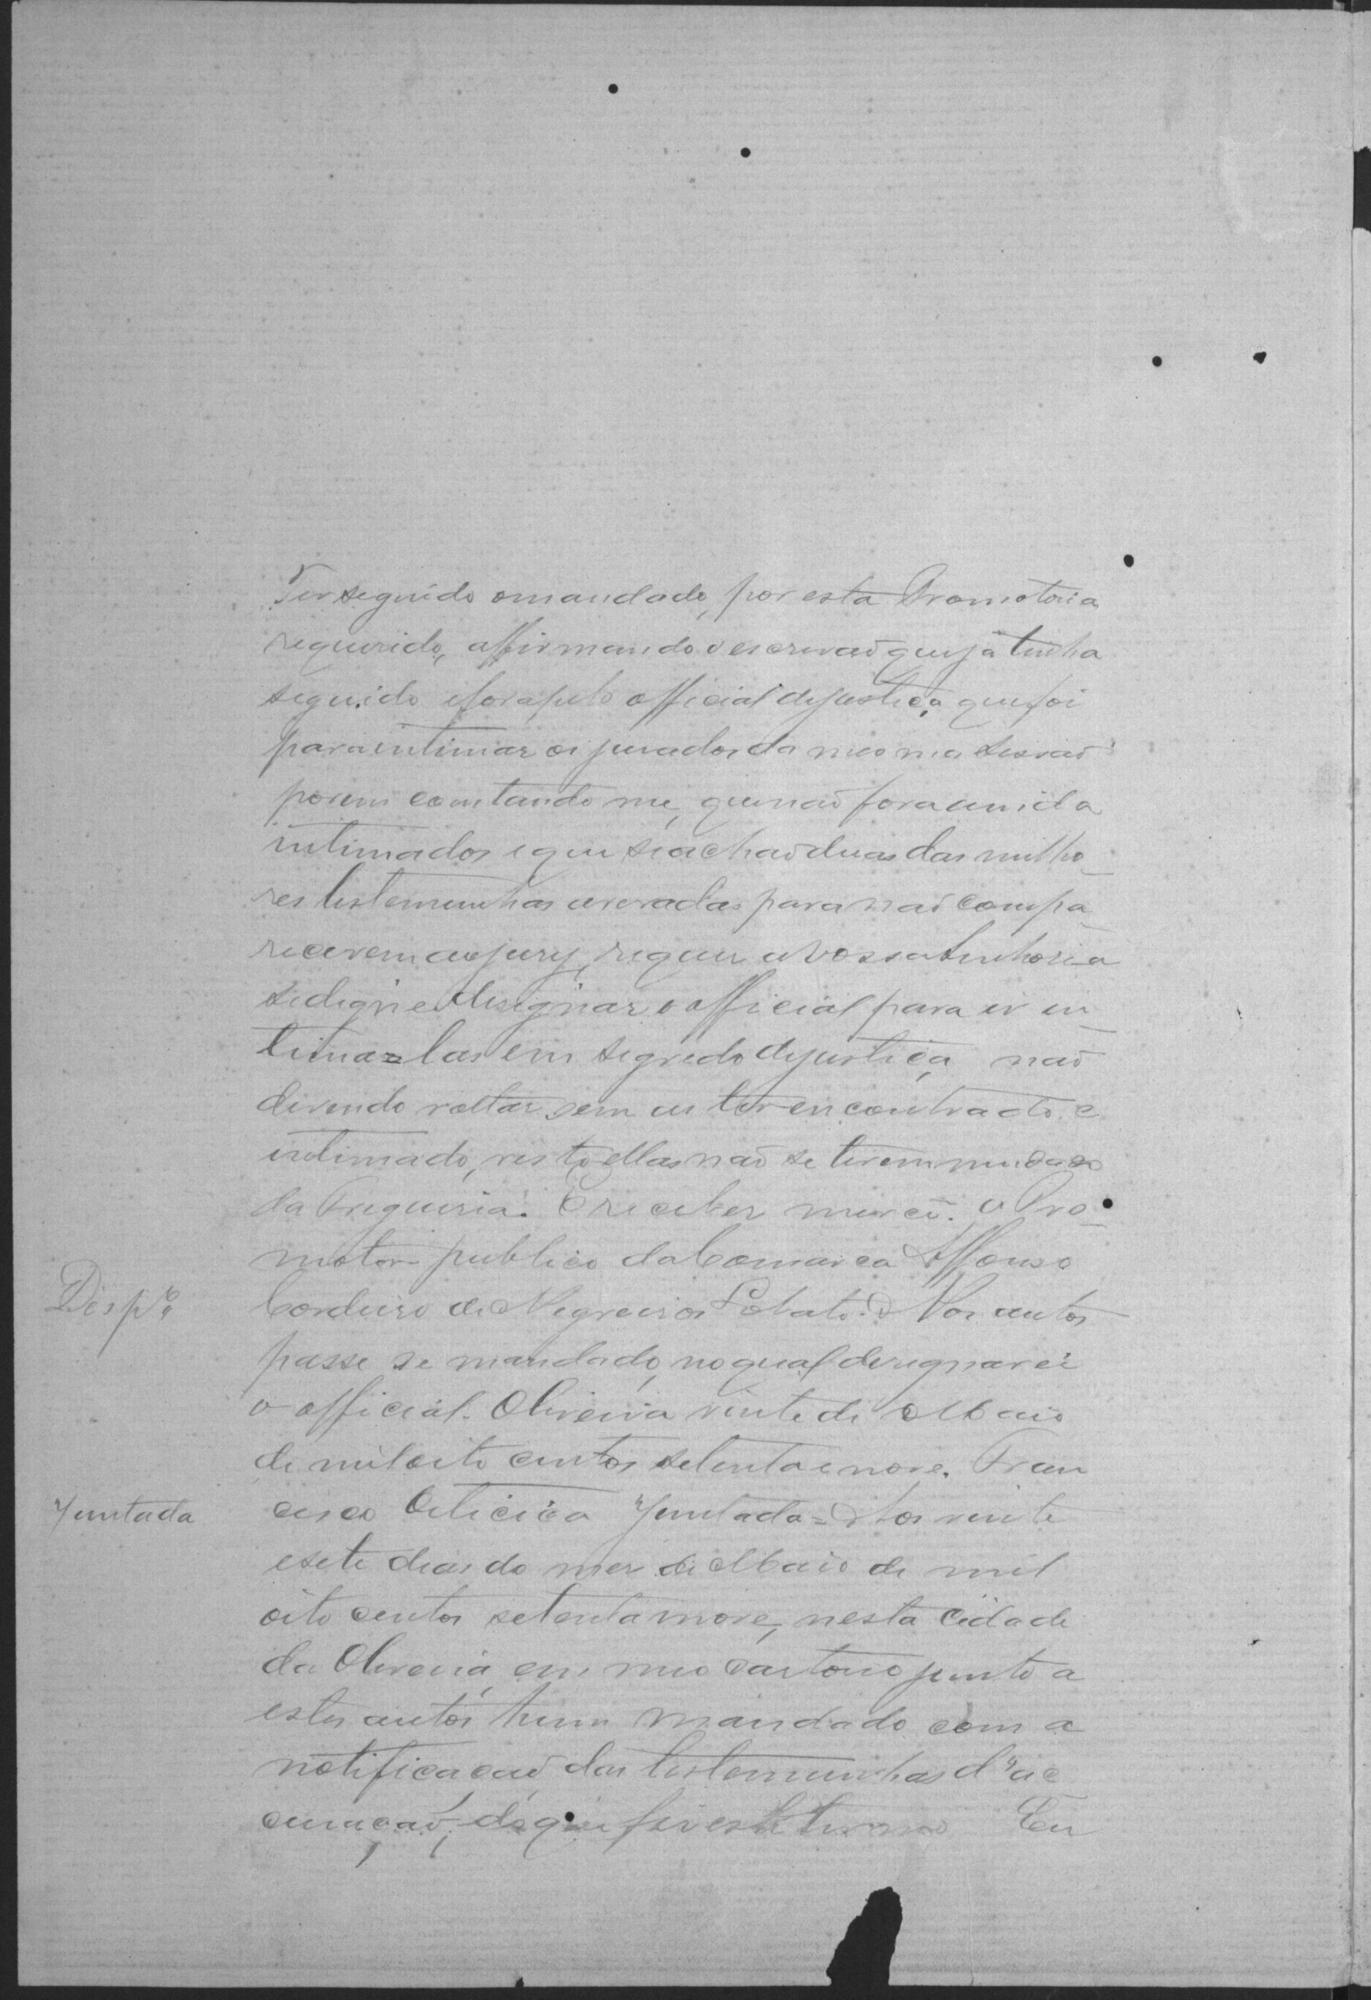 Ter seguido o mandado, por esta Promotoria
requerido, affirmando o escrivaõ que ja tinha
seguido e fora pelo official de justiça que foi
para intimar os jurados da mesma sessaõ
porem constando me, que naõ fora ainda
intimados e que se achaõ duas das milho
res testemunhas para naõ compa
recerem ao jury, requer a vossa Senhoria
se digne designar o official para ir in
timar-las em segredo de justiça naõ
devendo voltar sem as ter encontrado e
intimado, visto ellas naõ se terem mudado
da Freguesia. E receber mercê. O Pro
motor publico da Comarca Affonso
Disp.º Cordeiro de Negreiros Lobato. Nos autos
passe se mandado, no qual designarei
o official. Oliveira vinte de Maio
de mil oito centos setenta e nove. Fran
Juntada cisco Juntada = Aos vinte
e sete dias do mes de Maio de mil
oito centos setenta e nove, nesta Cidade
da Oliveira, em meo cartorio junto a
estes autos hum mandado com a
notificaçaõ das testemunhas d'ac
cusaçaõ, do que fiz este termo Eu